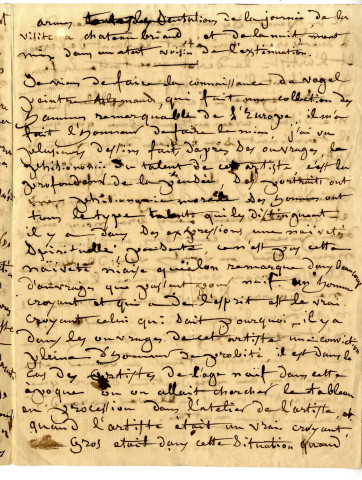 armes toutes les Sensations de la journée de la
visite a chateaubriand et de la nuit mont
mis dans un etat voisin de l'extinuation.
Je viens de faire la connaissance de vogel
peintre allemand, qui fait une collection des
hommes remarquable de l'Europe, il m'a
fait l'honneur de faire le mien, j'ai vu
plusieurs dessins fait d'après des ouvrages, la
phisionomie du talent de cet artiste c'est la
profondeur de la pensée Des portraits ont
une phisionomie morale Des hommes ont
tous le type talents qui les distinguent
il y a dans Des expressions une naiveté
Spirituelle, ce n'est pas cette
naiveté niaise quel'on remarque dans
d'ouvrage qui passant pour naif un homme
croyant et qui a de l'esprit est le vrai
croyant celui qui Sait pourquoi, il y a
dans les ouvrages de cet artiste une
pleine d'honneur de probité, il est dans le
Cas des artistes de l'age naif dans cette
époque ou on allait chercher le tableau
en procession dans l'atelier de l'artiste, et
quand l'artiste etait un vrai croyant
Gros etait dans cette Situation quand